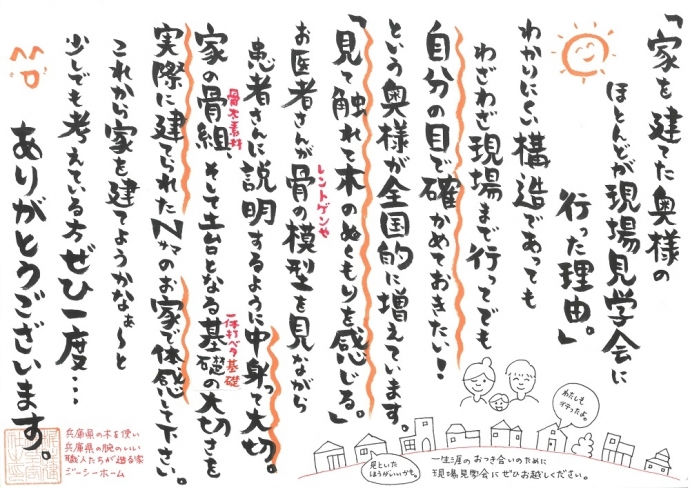 「家を建てた奥様の
ほとんどが現場見学会に
行った理由。」
わかりにくい構造であっても
わざわざ現場まで行ってでも
自分の目で確かめておきたい!
という奥様が全国的に増えています。
「見て触れて木のぬくもりを感じる。」
レントゲンや
お医者さんが骨の模型を見ながら
患者さんに説明するように中身って大切。
骨太素材
家の骨組、そして土台となる基礎の大切さを
一体打ベタ基礎
実際に建てられたNサマのお家で体感して下さい。
これから家を建てようかなぁ〜と
少しでも考えている方ぜひ一度…
ありがとうございます。
わたしも
イテったよ。
見といた
ほうがいいかも。
一生涯のおつき合いのために
現場見学会にぜひお越しください。
兵庫県の木を使い
兵庫県の腕のいい
職人たちが造る家
ジーシーホーム